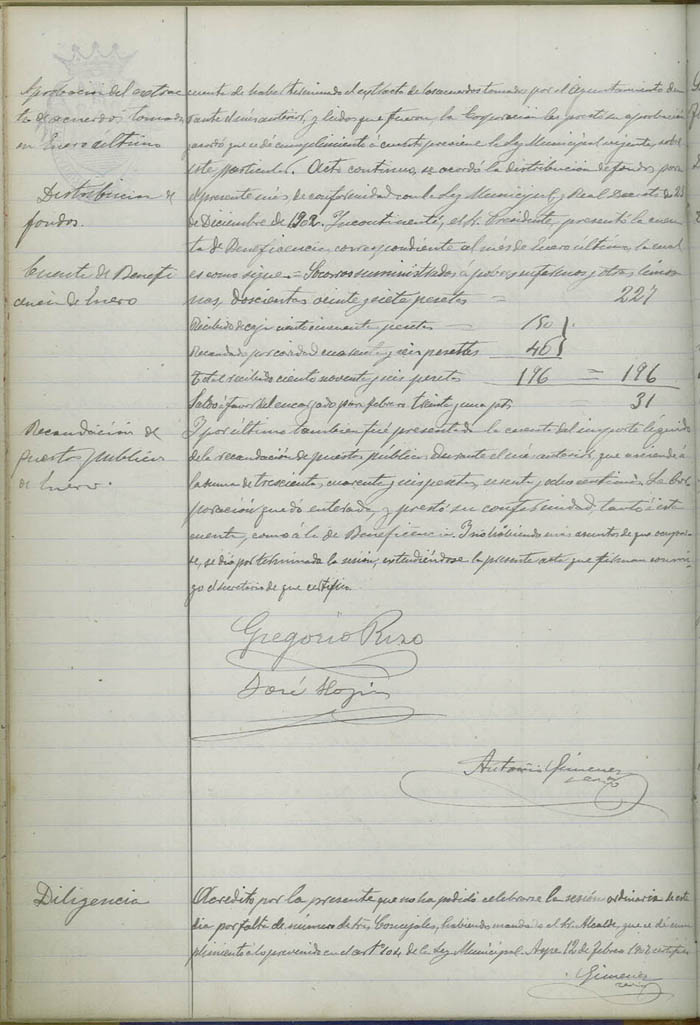 Aprobación del extrac
to de acuerdos tomados
en Enero último
cuenta de haber terminado el extracto de los acuerdos tomados por el Ayuntamiento du
rante el mes anterior, y leidos que fueron, la Corporación les prestó su aprobación
acordó que se dé cumplimiento á cuanto previene la Ley Municipal vigente, sobre
este particular. Acto continuo, se acordó la distribución de fondos para
Distribución de
fondos.
el presente mes, de conformidad con la Ley Municipal y Real Decreto de 23
de Diciembre de 1902. Incontinenti, el Sr. Presidente, presentó la cuen
ta de Beneficencia correspondiente al mes de Enero último, la cual
Cuenta de Benefi
cencia de Enero
es como sigue = Socorros suministrados á pobres enfermos y otras limos
nas, doscientas veinte y siete pesetas = 227
Recibido de caja ciento cincuenta pesetas — 150
Recaudado por caridad cuarenta y seis pesetas 46
Total recibido ciento noventa y seis pesetas 196 = 196
Saldo á favor del encargado para febrero treinta y una pts 31
Recaudación de
puestos publicos
de Enero.
Y por último tambien fué presentada la cuenta del importe líquido
de la recaudación de puestos públicos durante el mes anterior, que asciende a
la suma de trescientas cuarenta y seis pesetas, y ocho centimos. La Cor
poración quedó enterada y prestó su conformidad, tanto á esta
cuenta, como á la de Beneficencia. Y no habiendo más asuntos de que ocupar
se, se dió por terminada la sesión, extendiéndose la presente acta que firman conmi
go el secretario de que certifico.
Gregorio Rizo
José
Antonio Gimenez
Diligencia
Acredito por la presente que no ha podido celebrarse la sesión ordinaria de este
dia por falta de número de Sres Concejales, habiendo mandado el Sr. Alcalde, que se dé cum
plimiento a lo prevenido en el artº 104 de la Ley Municipal. Aspe 12 de Febrero certifico
Gimenez